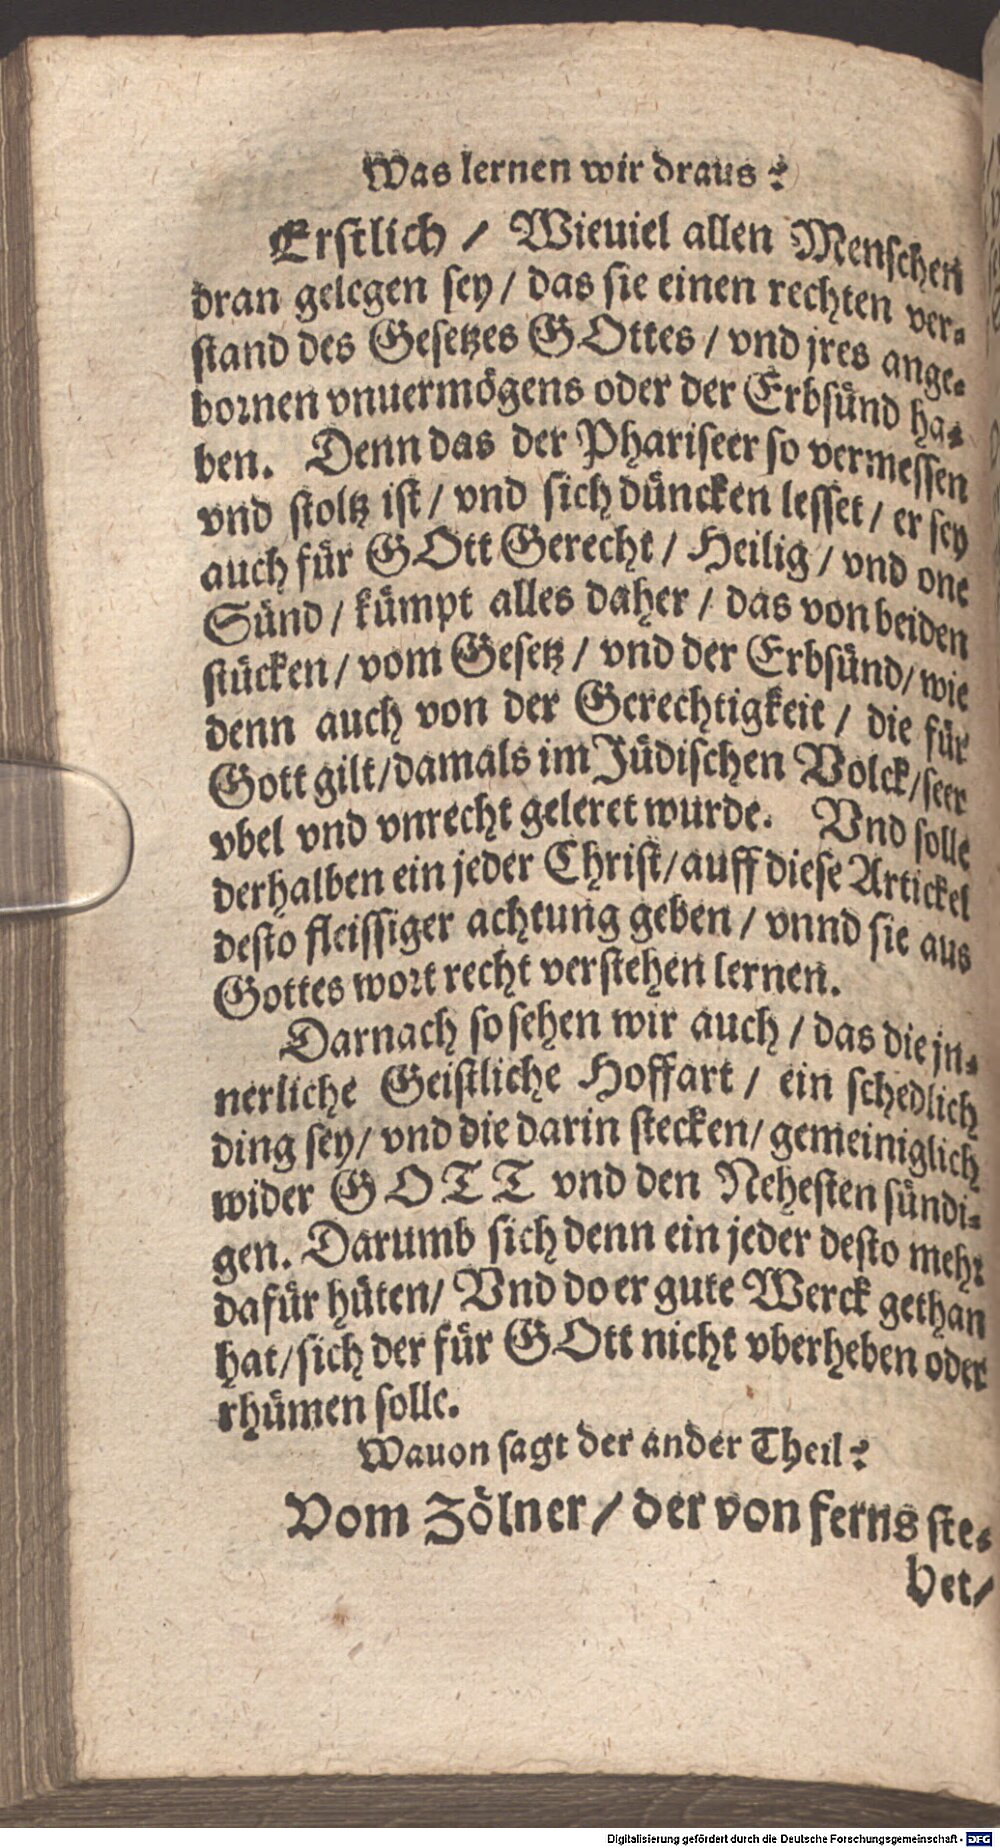 Was lernen wir draus?
Erstlich / Wieuiel allen Menschen
dran gelegen sey / das sie einen rechten ver-
stand des Gesetzes GOttes / vnd jres ange-
bornen vnuermögens oder der Erbsünd ha-
ben. Denn das der Phariseer so vermessen
vnd stoltz ist / vnd sich düncken lesset / er sey
auch für GOtt Gerecht / Heilig / vnd one
Sünd / kümpt alles daher / das von beiden
stücken / vom Gesetz / vnd der Erbsünd / wie
denn auch von der Gerechtigkeit / die für
Gott gilt / damals im Jüdischen Volck / seer
vbel vnd vnrecht geleret wurde. Vnd solle
derhalben ein jeder Christ / auff diese Artickel
desto fleissiger achtung geben / vnnd sie aus
Gottes wort recht verstehen lernen.
Darnach so sehen wir auch / das die jn-
nerliche Geistliche Hoffart / ein schedlich
ding sey / vnd die darin stecken / gemeiniglich
wider GOTT vnd den Nehesten sündi-
gen. Darumb sich denn ein jeder desto mehr
dafür hüten / Vnd do er gute Werck gethan
hat / sich der für GOtt nicht vberheben oder
rhümen solle.
Wauon sagt der ander Theil?
Vom Zölner / der von ferns ste-
het /
Digitalisierung gefördert durch die Deutsche Forschungsgemeinschaft - DFG